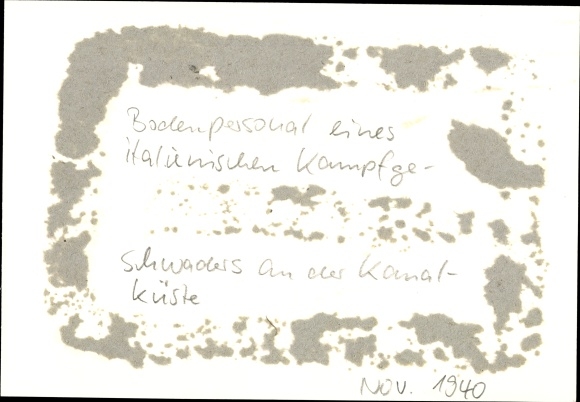 Bodenpersonal eines
italienischen Kampfge-
schwaders an der Kanal-
küste
Nov. 1940